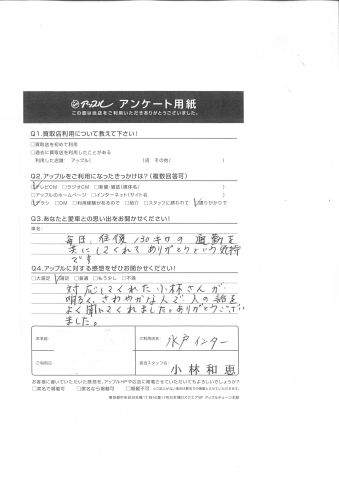 アップル アンケート用紙
この度は当店をご利用いただきありがとうございました。
Q1.買取店利用について教えて下さい!
□買取店を初めて利用
□過去に買取店を利用したことがある
利用した店舗: アップル( )店 その他( )
Q2.アップルをご利用になったきっかけは?(複数回答可)
□テレビCM □ラジオCM □新聞・雑誌(媒体名 )
□アップルのホームページ □インターネット(サイト名 )
□チラシ □DM □利用経験があるので □紹介 □スタッフに誘われて □通りがかりで
Q3.あなたと愛車との思い出をお聞かせください!
車名:
毎日、往復130キロの通勤を
共にしてくれてありがとうという気持
です
Q4.アップルに対する感想をぜひお聞かせください!
□大満足 □満足 □普通 □もう少し □不満
対応してくれた小林さんが
明るく、さわやかな人で、人の話を
よく聞いてくれました。ありがとうござい
ました。
ご利用店名:
水戸インター
ご利用日:
担当スタッフ名:
小林和恵
お客様に書いていただいた感想を、アップルHPや広告に掲載させていただいてもよろしいでしょうか?
□実名で掲載可 □匿名なら掲載可 □掲載不可